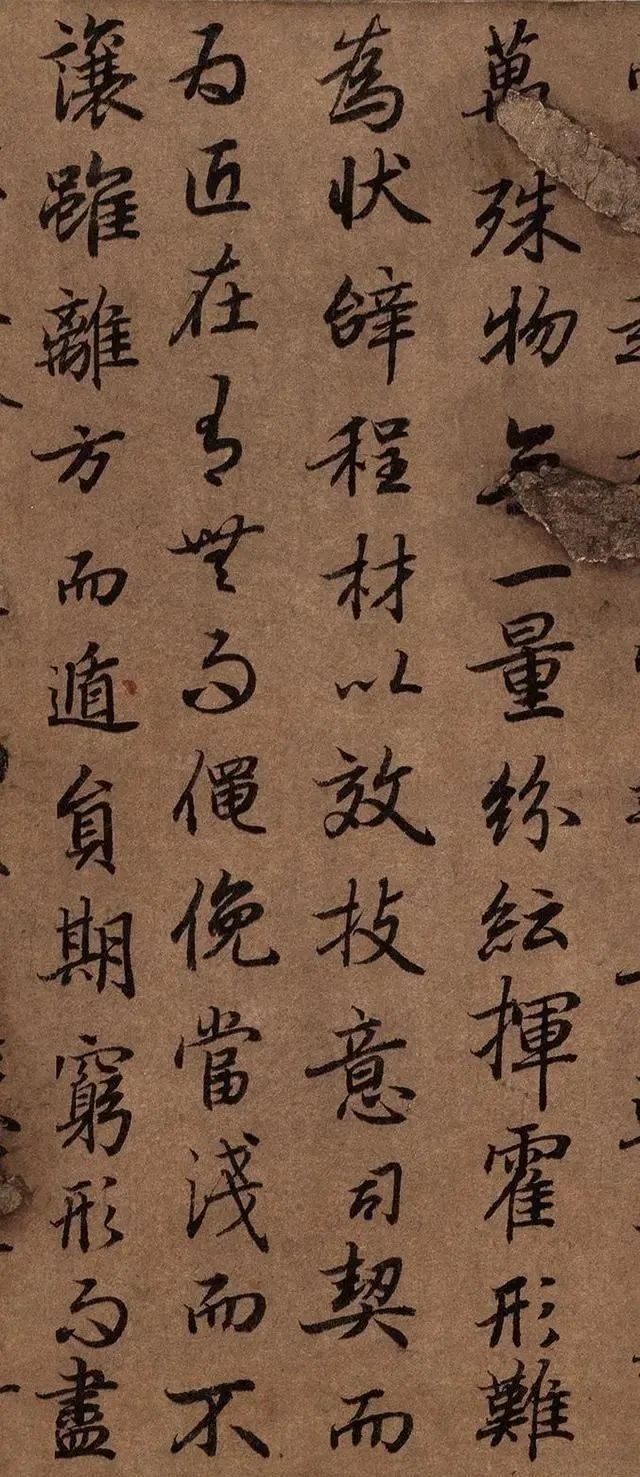 萬殊物無一量紛紜揮霍形難
為狀辝程材以效技意司契而
為匠在有無而僶俛當淺而不
讓雖離方而遁員期窮形而盡